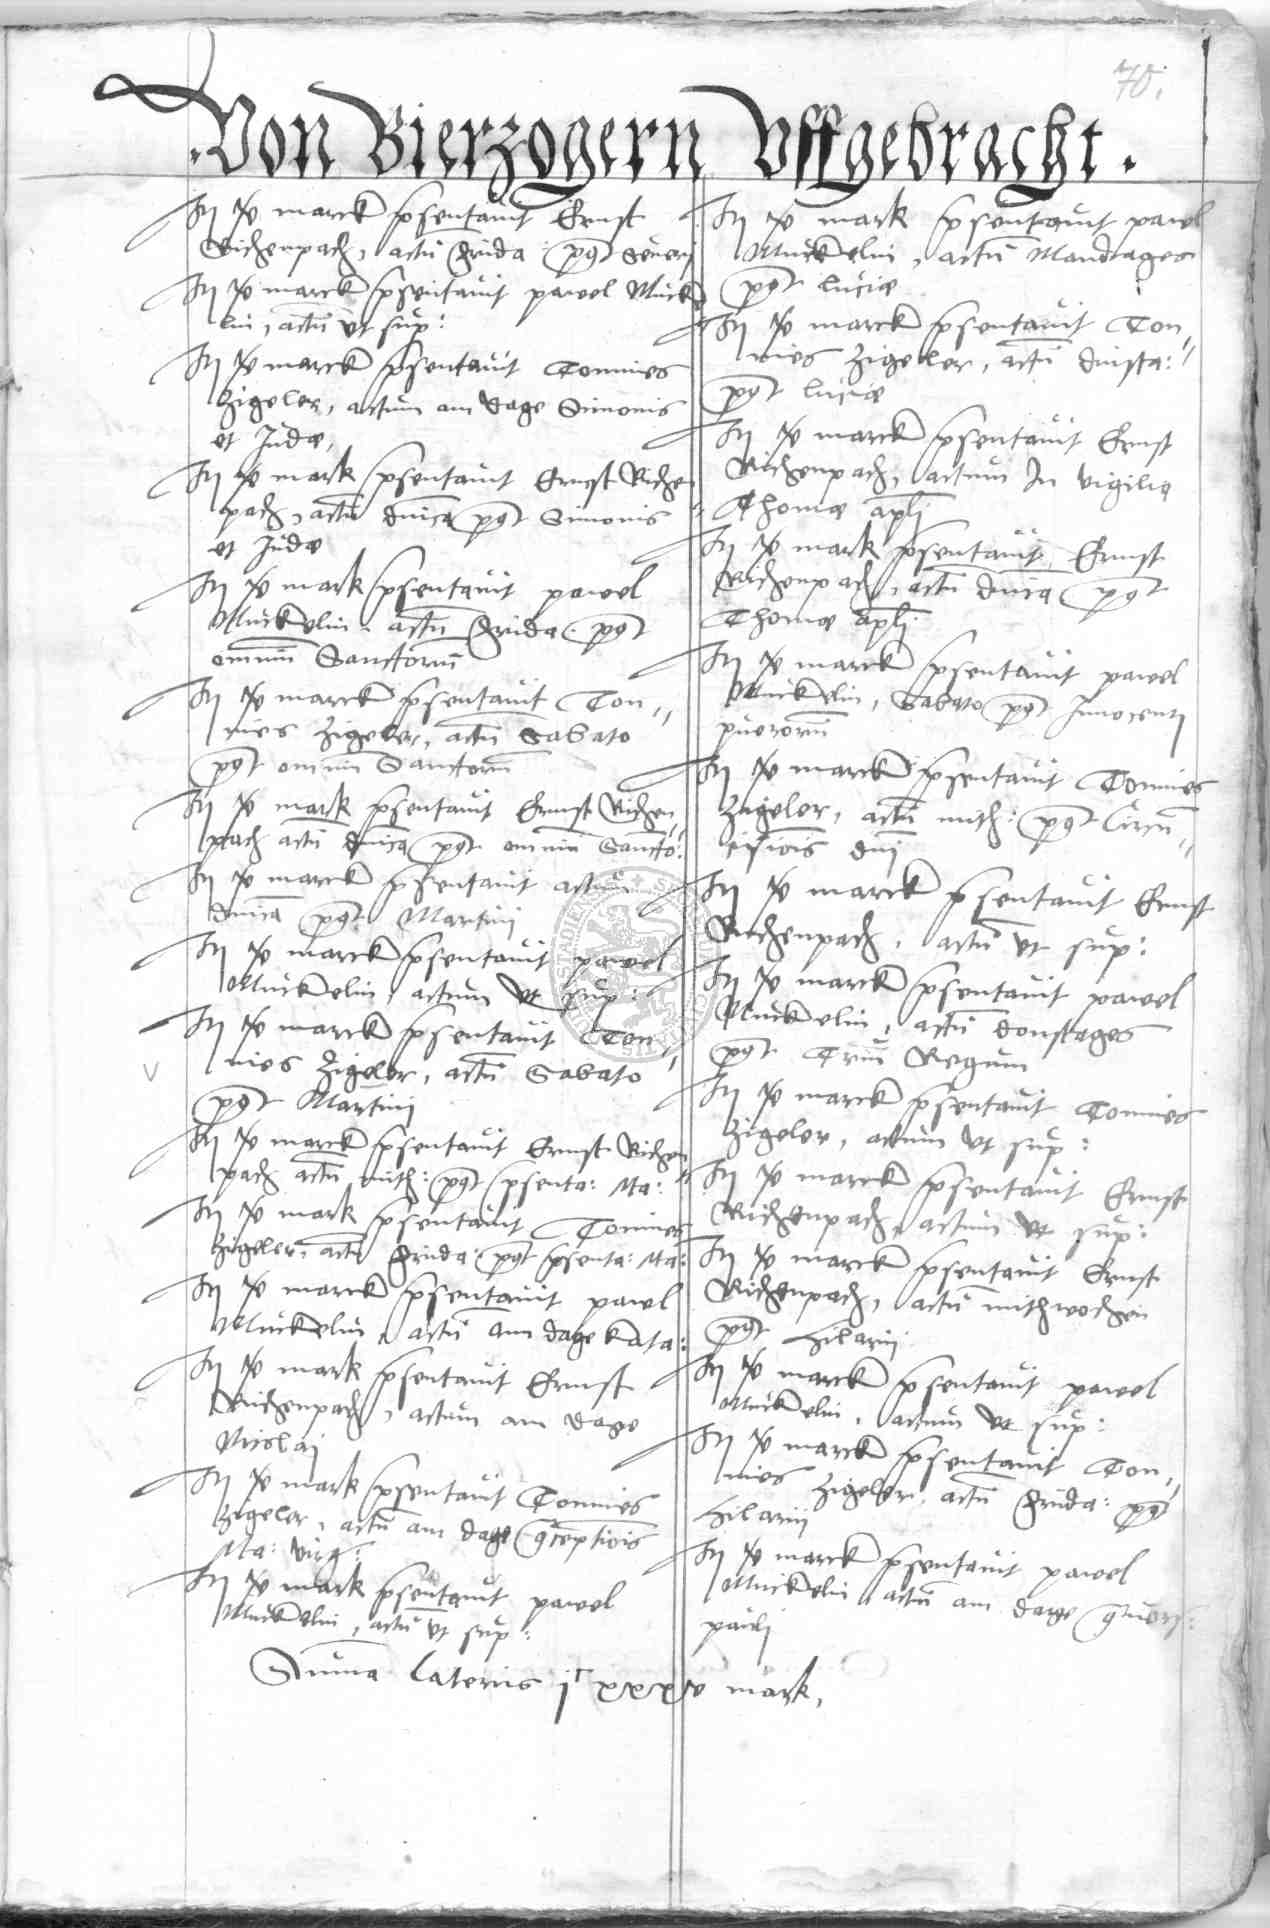 70.
Von Bierzogern Vffgebracht.
It. iv marck psentauit Ernst
Richenpach, actu frida: post Seueri
It. iv marck psentauit pawel Muck
lin, actu vt sup:
It. iv marck psentauit Tonnies
Zigeler, actum am dage Simonis
et Jude,
It. iv mark psentauit Ernst Richen
pach, actu dnica post Simonis
et Jude
It. iv mark psentauit pawel
Muckelin, actu frida: post
omniu Sanctoru
It. iv marck psentauit Ton
nies Zigeler, actu Sabato
post omniu Sanctoru
It. iv mark psentauit Ernst Richen
pach actu dnica post omniu Sancto:
It. iv marck psentauit actum
dnica post Martini
It. iv marck psentauit pawel
Muckelin, actum vt sup:
It. iv marck psentauit Ton
nies Zigeler, actu Sabato
post Martini
It. iv marck psentauit Ernst Richen
pach actu mith: post psenta: Ma:
It. iv mark psentauit Tonnies
Zigeler, actu frida: post psenta: Ma:
It. iv marck psentauit pawel
Muckelin, actu am dage Kata:
It. iv mark psentauit Ernst
Richenpach, actum am dage
Nicolai
It. iv mark psentauit Tonnies
Zigeler, actu am dage Conceptiois
Ma: virg:
It. iv mark psentauit pawel
Muckelin, actu vt sup:
It. iv mark psentauit pawel
Muckelin, actu Mandages
post lucie
It. iv marck psentauit Ton
nies Zigeler, actu dinsta:
post lucie
It. iv marck psentauit Ernst
Richenpach, actum In vigilia
Thome apli
It. iv mark psentauit Ernst
Richenpach, actu dnica post
Thome apli
It. iv marck psentauit pawel
Muckelin, Sabato post Innocenti
pueroru
It. iv marck psentauit Tonnies
Zigeler, actu mith: post Circu
cisiois dni
It. iv marck psentauit Ernst
Richenpach, actu vt sup:
It. iv marck psentauit pawel
Muckelin, actu donstages
post Triu Regum
It. iv marck psentauit Tonnies
Zigeler, actum vt sup:
It. iv marck psentauit Ernst
Richenpach, actum vt sup:
It. iv marck psentauit Ernst
Richenpach, actu mithwochen
post Hilarii
It. iv marck psentauit pawel
Muckelin, actum vt sup:
It. iv marck psentauit Ton
nies Zigeler, actu frida: post
Hilarii
It. iv marck psentauit pawel
Muckelin actu am dage Conuers:
pauli
Suma Lateris jc xxxiv mark,